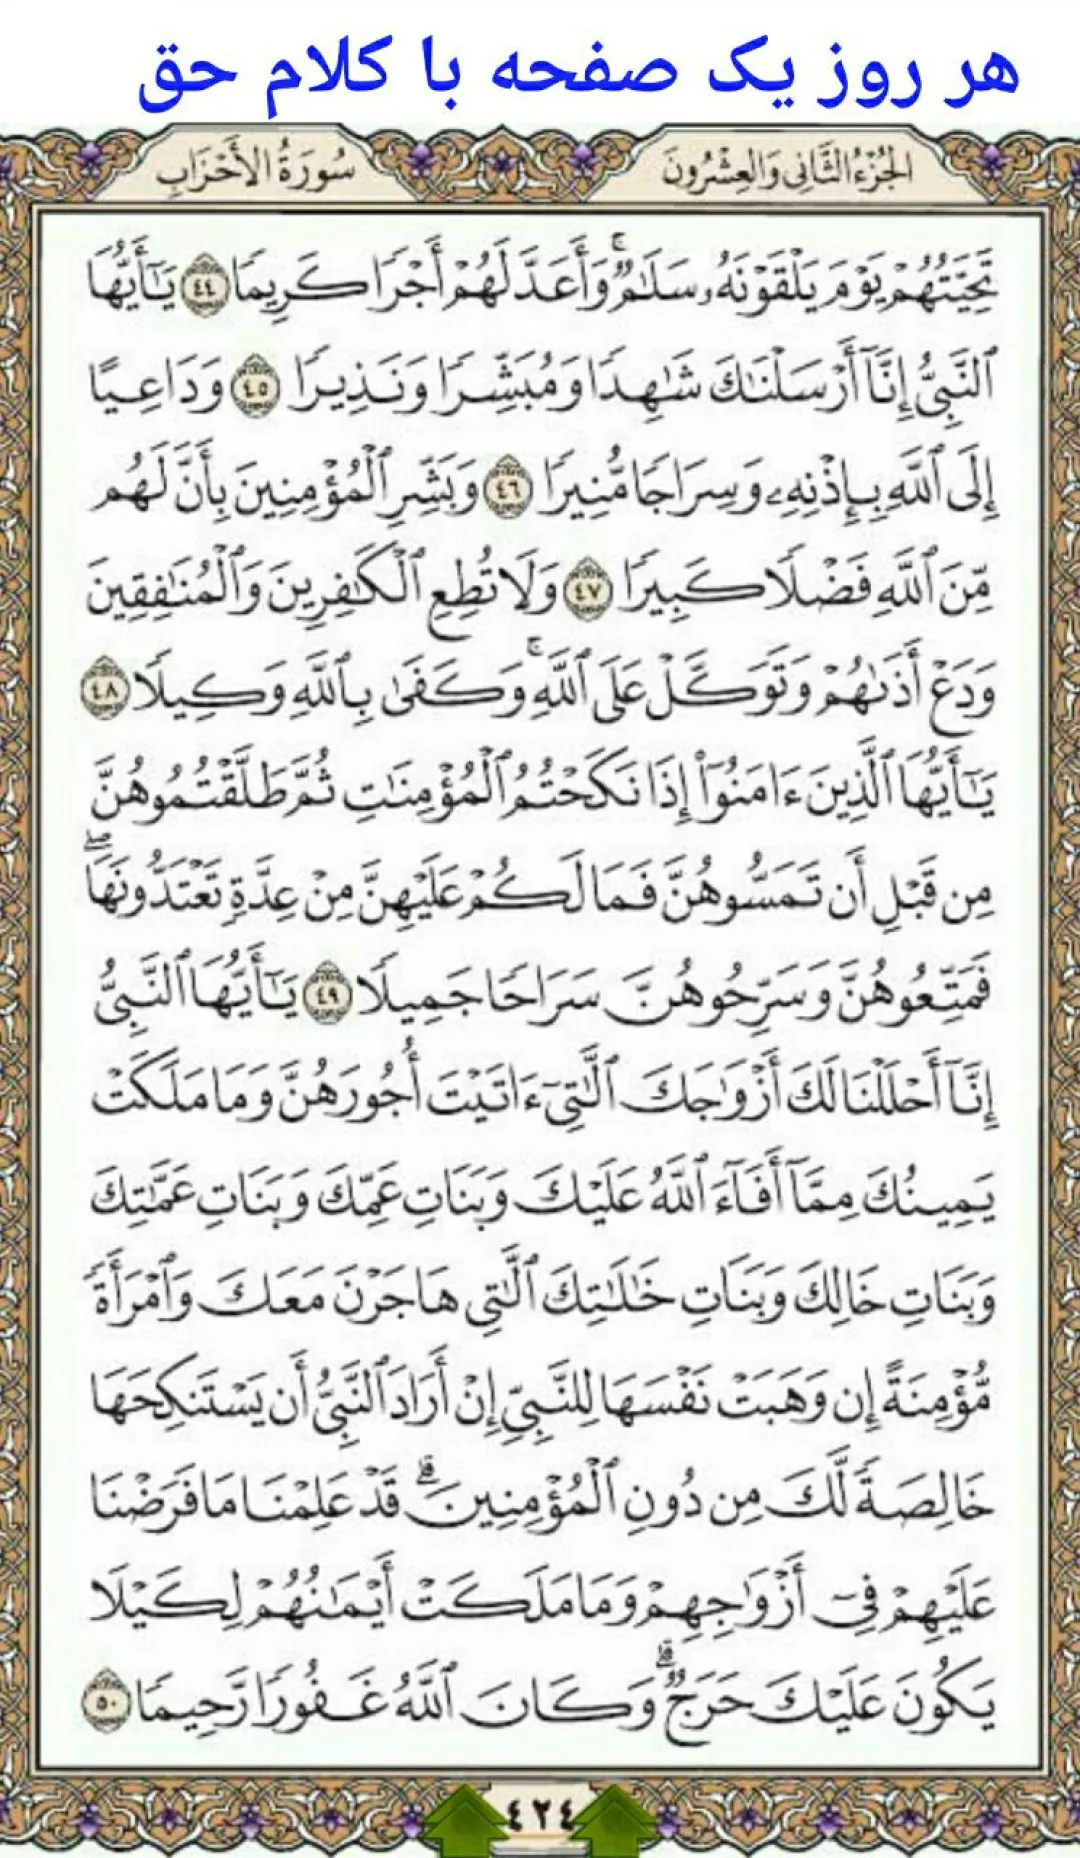 هر روز یک صفحه با کلام حق
الجُزْءُ الثَّانِي وَالعِشْرُونَ
سُورَةُ الأَحْزَابِ
تَحِيَّتُهُمْ يَوْمَ يَلْقَوْنَهُۥ سَلَٰمٌۚ وَأَعَدَّ لَهُمْ أَجْرًا كَرِيمًا ٤٤ يَٰٓأَيُّهَا
ٱلنَّبِيُّ إِنَّآ أَرْسَلْنَٰكَ شَٰهِدًا وَمُبَشِّرًا وَنَذِيرًا ٤٥ وَدَاعِيًا
إِلَى ٱللَّهِ بِإِذْنِهِۦ وَسِرَاجًا مُّنِيرًا ٤٦ وَبَشِّرِ ٱلْمُؤْمِنِينَ بِأَنَّ لَهُم
مِّنَ ٱللَّهِ فَضْلًا كَبِيرًا ٤٧ وَلَا تُطِعِ ٱلْكَٰفِرِينَ وَٱلْمُنَٰفِقِينَ
وَدَعْ أَذَىٰهُمْ وَتَوَكَّلْ عَلَى ٱللَّهِۚ وَكَفَىٰ بِٱللَّهِ وَكِيلًا ٤٨
يَٰٓأَيُّهَا ٱلَّذِينَ ءَامَنُوٓا۟ إِذَا نَكَحْتُمُ ٱلْمُؤْمِنَٰتِ ثُمَّ طَلَّقْتُمُوهُنَّ
مِن قَبْلِ أَن تَمَسُّوهُنَّ فَمَا لَكُمْ عَلَيْهِنَّ مِنْ عِدَّةٍ تَعْتَدُّونَهَاۖ
فَمَتِّعُوهُنَّ وَسَرِّحُوهُنَّ سَرَاحًا جَمِيلًا ٤٩ يَٰٓأَيُّهَا ٱلنَّبِيُّ
إِنَّآ أَحْلَلْنَا لَكَ أَزْوَٰجَكَ ٱلَّٰتِيٓ ءَاتَيْتَ أُجُورَهُنَّ وَمَا مَلَكَتْ
يَمِينُكَ مِمَّآ أَفَآءَ ٱللَّهُ عَلَيْكَ وَبَنَاتِ عَمِّكَ وَبَنَاتِ عَمَّٰتِكَ
وَبَنَاتِ خَالِكَ وَبَنَاتِ خَٰلَٰتِكَ ٱلَّٰتِي هَاجَرْنَ مَعَكَ وَٱمْرَأَةً
مُّؤْمِنَةً إِن وَهَبَتْ نَفْسَهَا لِلنَّبِيِّ إِنْ أَرَادَ ٱلنَّبِيُّ أَن يَسْتَنكِحَهَا
خَالِصَةً لَّكَ مِن دُونِ ٱلْمُؤْمِنِينَۗ قَدْ عَلِمْنَا مَا فَرَضْنَا
عَلَيْهِمْ فِيٓ أَزْوَٰجِهِمْ وَمَا مَلَكَتْ أَيْمَٰنُهُمْ لِكَيْلَا
يَكُونَ عَلَيْكَ حَرَجٌۗ وَكَانَ ٱللَّهُ غَفُورًا رَّحِيمًا ٥٠
٤٢٤